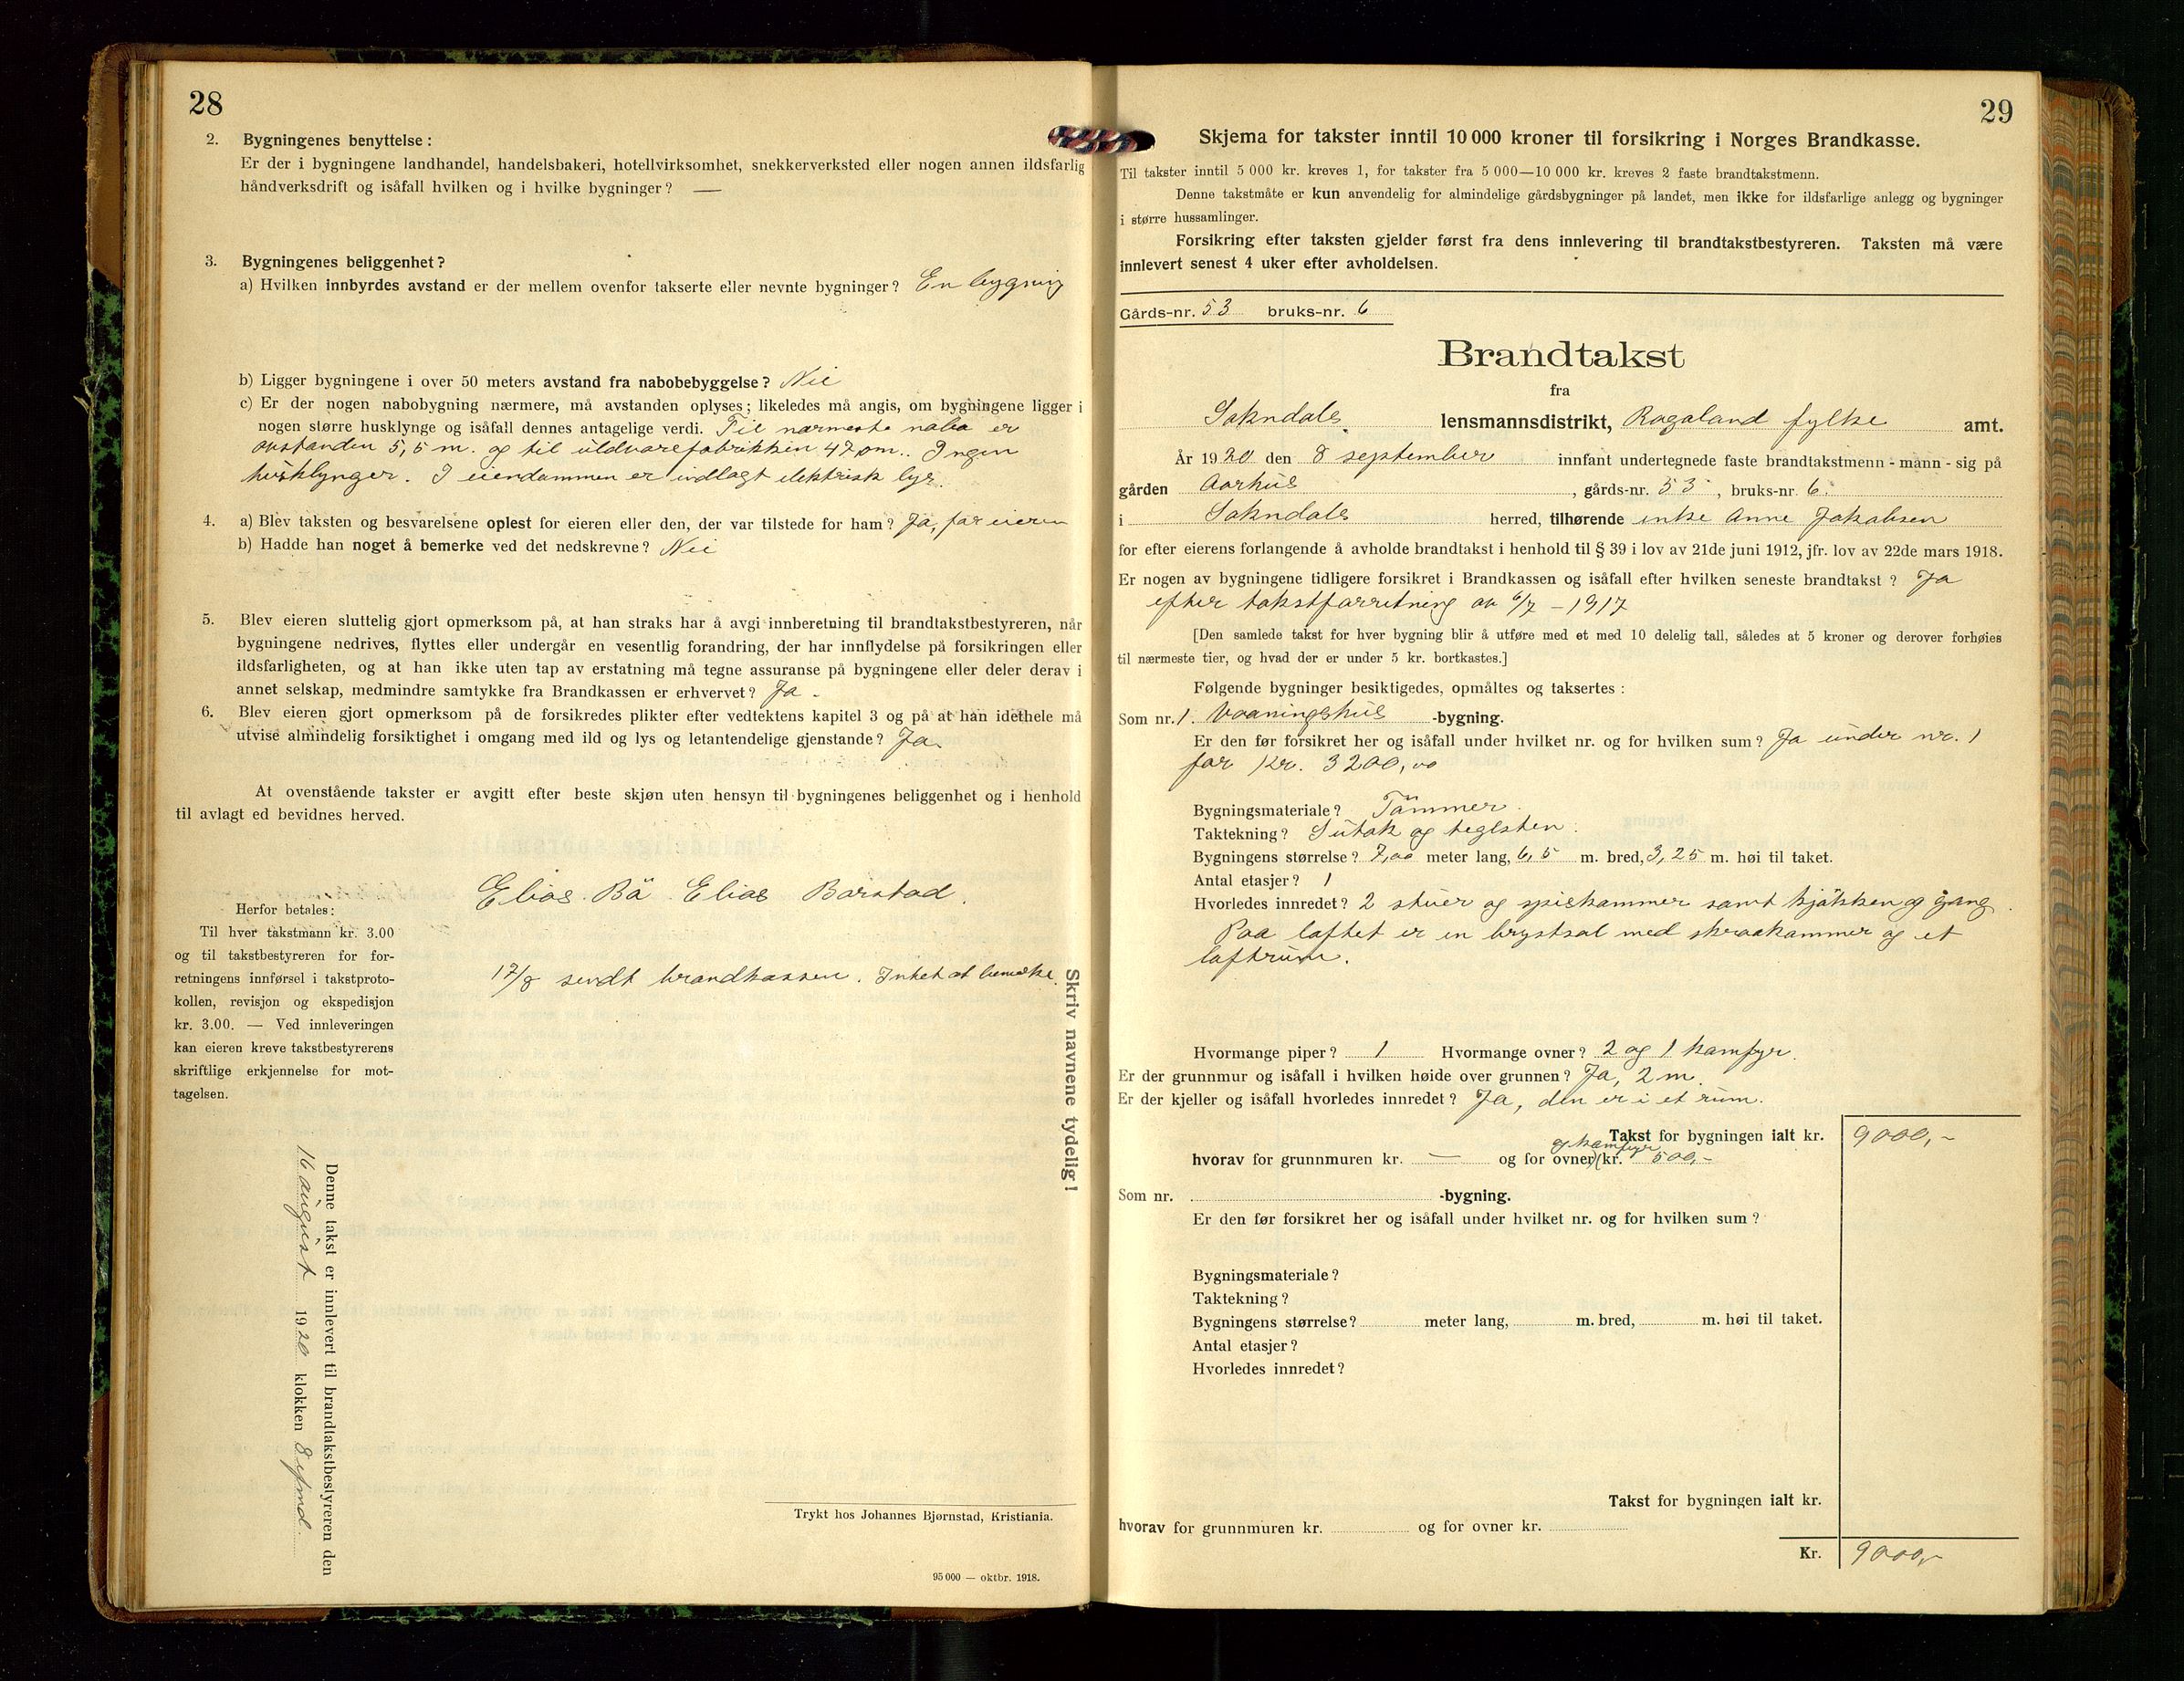 28
2. Bygningenes benyttelse:
Er der i bygningene landhandel, handelsbakeri, hotellvirksomhet, snekkerverksted eller nogen annen ildsfarlig
håndverksdrift og isåfall hvilken og i hvilke bygninger? —
3. Bygningenes beliggenhet?
a) Hvilken innbyrdes avstand er der mellem ovenfor takserte eller nevnte bygninger? En bygning
b) Ligger bygningene i over 50 meters avstand fra nabobebyggelse? Nei
c) Er der nogen nabobygning nærmere, må avstanden oplyses; likeledes må angis, om bygningene ligger i
nogen større husklynge og isåfall dennes antagelige verdi. Til nærmeste nabo er
avstanden 5,5 m. og til uldvarefabrikken 47 m. Ingen
husklynger. I eiendommen er indlagt elektrisk lys.
4. a) Blev taksten og besvarelsene oplest for eieren eller den, der var tilstede for ham? Ja, for eieren
b) Hadde han noget å bemerke ved det nedskrevne? Nei
5. Blev eieren sluttelig gjort opmerksom på, at han straks har å avgi innberetning til brandtakstbestyreren, når
bygningene nedrives, flyttes eller undergår en vesentlig forandring, der har innflydelse på forsikringen eller
ildsfarligheten, og at han ikke uten tap av erstatning må tegne assuranse på bygningene eller deler derav i
annet selskap, medmindre samtykke fra Brandkassen er erhvervet? Ja.
6. Blev eieren gjort opmerksom på de forsikredes plikter efter vedtektens kapitel 3 og på at han idethele må
utvise almindelig forsiktighet i omgang med ild og lys og letantendelige gjenstande? Ja.
At ovenstående takster er avgitt efter beste skjøn uten hensyn til bygningenes beliggenhet og i henhold
til avlagt ed bevidnes herved.
Elias Bö Elias Barstad.
17/8 sendt brandkassen. Intet at bemerke.
Herfor betales:
Til hver takstmann kr. 3.00
og til takstbestyreren for for-
retningens innførsel i takstproto-
kollen, revisjon og ekspedisjon
kr. 3.00. — Ved innleveringen
kan eieren kreve takstbestyrerens
skriftlige erkjennelse for mot-
tagelsen.
Denne takst er innlevert til brandtakstbestyreren den
16 august 1920 klokken 8 efmd.
Skriv navnene tydelig!
Trykt hos Johannes Bjørnstad, Kristiania.
95 000 — oktbr. 1918.
29
Skjema for takster inntil 10 000 kroner til forsikring i Norges Brandkasse.
Til takster inntil 5 000 kr. kreves 1, for takster fra 5 000—10 000 kr. kreves 2 faste brandtakstmenn.
Denne takstmåte er kun anvendelig for almindelige gårdsbygninger på landet, men ikke for ildsfarlige anlegg og bygninger
i større hussamlinger.
Forsikring efter taksten gjelder først fra dens innlevering til brandtakstbestyreren. Taksten må være
innlevert senest 4 uker efter avholdelsen.
Gårds-nr. 53 bruks-nr. 6
Brandtakst
fra
Sokndals lensmannsdistrikt, Rogaland fylke amt.
År 1920 den 8 september innfant undertegnede faste brandtakstmenn - mann - sig på
gården Aarhus, gårds-nr. 53, bruks-nr. 6.
i Sokndals herred, tilhørende enke Anne Jakobsen
for efter eierens forlangende å avholde brandtakst i henhold til § 39 i lov av 21de juni 1912, jfr. lov av 22de mars 1918.
Er nogen av bygningene tidligere forsikret i Brandkassen og isåfall efter hvilken seneste brandtakst? Ja
efter takstforretning av 6/7 - 1917
[Den samlede takst for hver bygning blir å utføre med et med 10 delelig tall, således at 5 kroner og derover forhøies
til nærmeste tier, og hvad der er under 5 kr. bortkastes.]
Følgende bygninger besiktigedes, opmåltes og taksertes:
Som nr. 1. Vaaningshus -bygning.
Er den før forsikret her og isåfall under hvilket nr. og for hvilken sum? Ja under nr. 1
for Kr. 3200,00
Bygningsmateriale? Tömmer.
Taktekning? Sutak og teglsten.
Bygningens størrelse? 7,00 meter lang, 6,5 m. bred, 3,25 m. høi til taket.
Antal etasjer? 1
Hvorledes innredet? 2 stuer og spiskammer samt kjökken og gang.
Paa loftet er en brystsal med skraakammer og et
loftrum.
Hvormange piper? 1 Hvormange ovner? 2 og 1 komfyr.
Er der grunnmur og isåfall i hvilken høide over grunnen? Ja, 2 m.
Er der kjeller og isåfall hvorledes innredet? Ja, den er i et rum.
Takst for bygningen ialt kr. 9000,-
og komfyr
hvorav for grunnmuren kr. — og for ovner (kr. 500,-
Som nr. -bygning.
Er den før forsikret her og isåfall under hvilket nr. og for hvilken sum?
Bygningsmateriale?
Taktekning?
Bygningens størrelse? meter lang, m. bred, m. høi til taket.
Antal etasjer?
Hvorledes innredet?
Takst for bygningen ialt kr.
hvorav for grunnmuren kr. og for ovner kr.
Kr. 9000,-